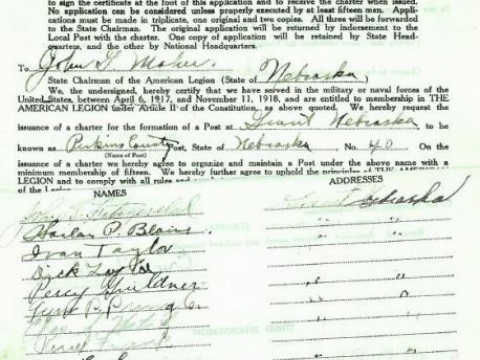 to sign the certificate at the foot of this application and to receive the charter when issued.
No application can be considered unless properly executed by at least fifteen men. Appli-
cations must be made in triplicate, one original and two copies. All three will be forwarded
to the State Chairman. The original application will be returned by indorsement to the
Local Post with the charter. One copy of application will be retained by State Head-
quarters, and the other by National Headquarters.
To John G. Maher,
State Chairman of the American Legion (State of Nebraska)
We, the undersigned, hereby certify that we have served in the military or naval forces of the
United States, between April 6, 1917, and November 11, 1918, and are entitled to membership in THE
AMERICAN LEGION under Article II of the Constitution, as above quoted. We hereby request the
issuance of a charter for the formation of a Post at Grant Nebraska to be
known as Perkins County Post, State of Nebraska No. 40 On the
(Name of Post)
issuance of the charter we hereby agree to organize and maintain a Post under the above name with a
minimum membership of fifteen. We hereby further agree to uphold the principles of the AMERICAN
LEGION and to comply with all rules and
of the Legion
NAMES ADDRESSES
Grant Nebraska
Harlan P. Blair " "
Ivan Taylor " "
Dick Taylor "
Percy Guildner "
"
"
"